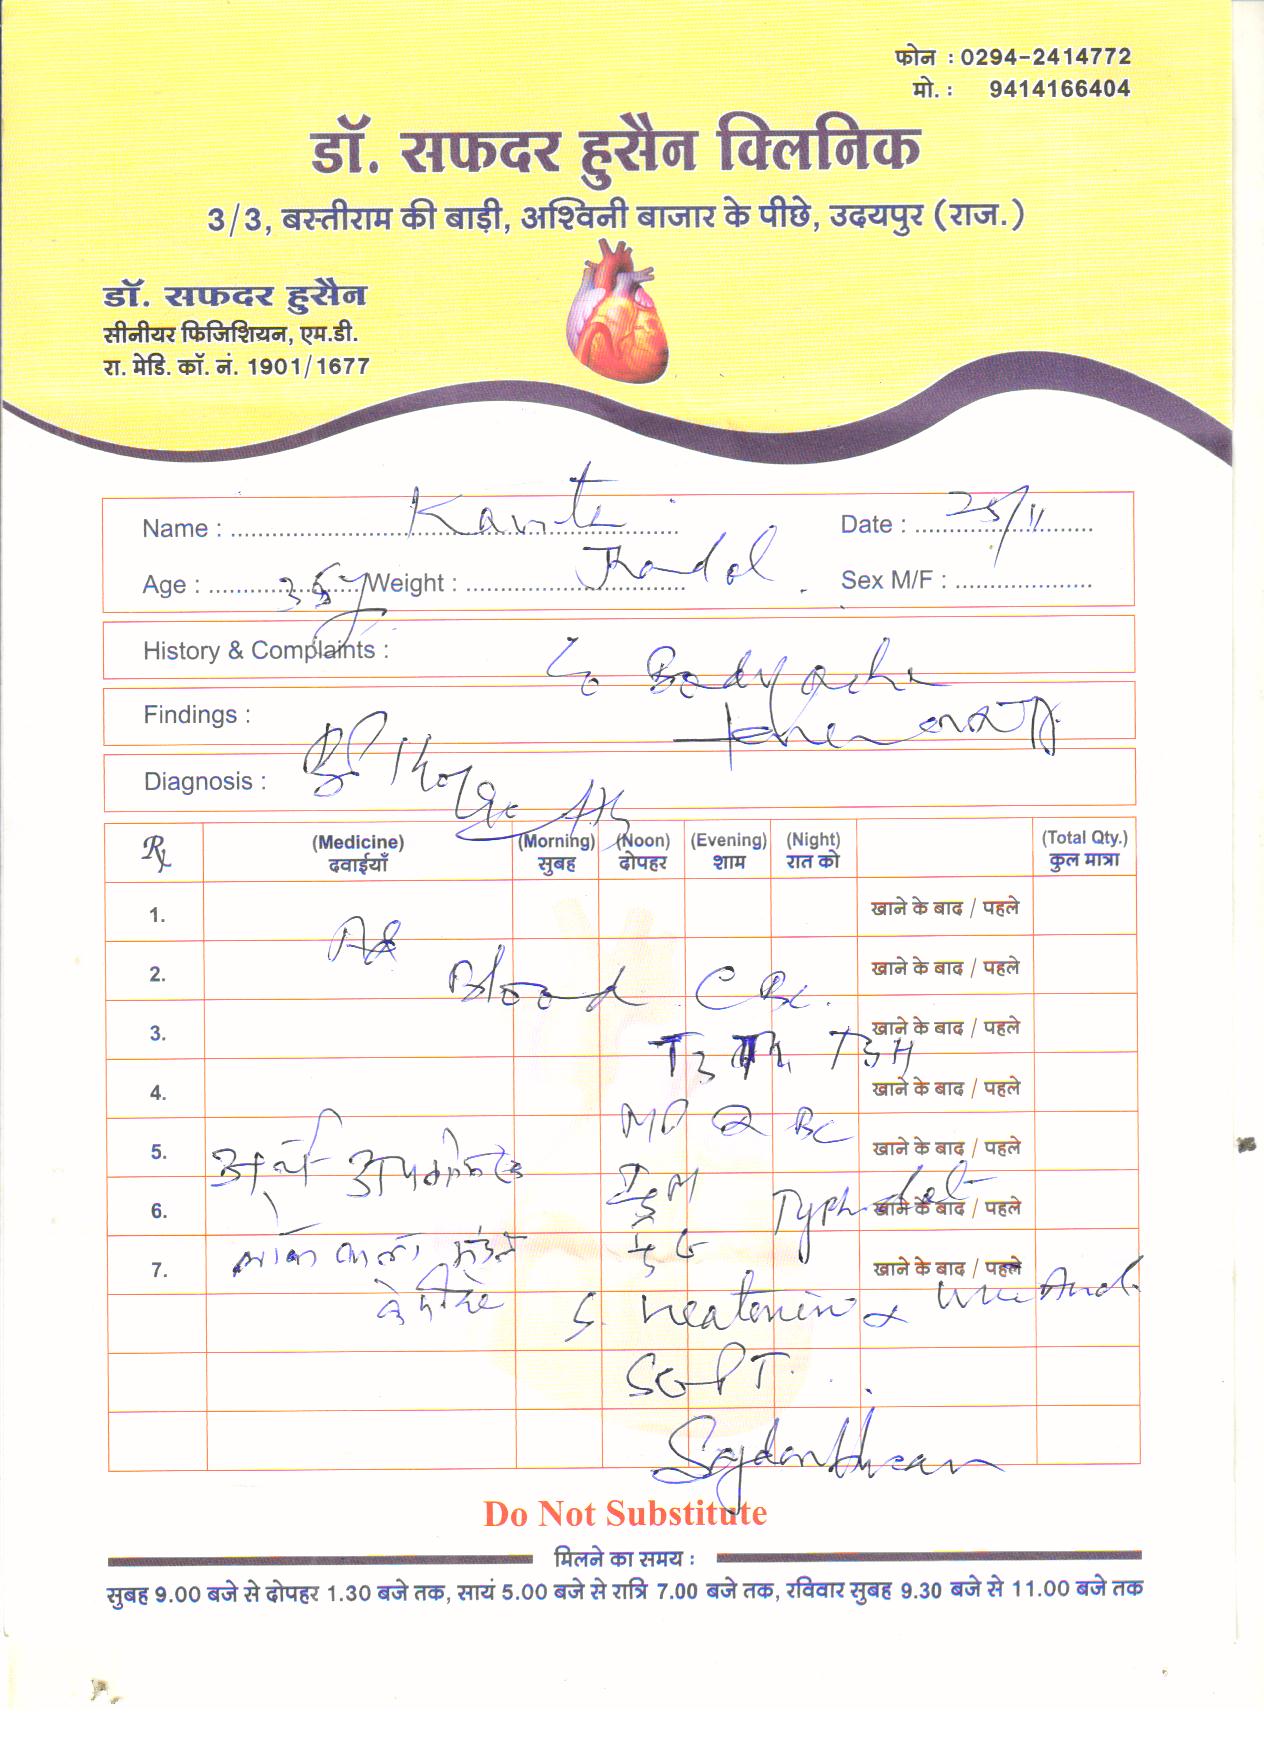 फोन : 0294-2414772
मो. : 9414166404
डॉ. सफदर हुसैन क्लिनिक
3/3, बस्तीराम की बाड़ी, अश्विनी बाजार के पीछे, उदयपुर (राज.)
डॉ. सफदर हुसैन
सीनीयर फिजिशियन, एम.डी.
रा. मेडि. कॉ. नं. 1901/1677
Name : Date : 25/11
Age : Weight : Sex M/F :
History & Complaints : Bodyache
Findings :
Diagnosis :
Rx (Medicine) (Morning) (Noon) (Evening) (Night) (Total Qty.)
दवाईयाँ सुबह दोपहर शाम रात को कुल मात्रा
1. खाने के बाद / पहले
2. Blood CBC खाने के बाद / पहले
3. खाने के बाद / पहले
T3 TSH
4. खाने के बाद / पहले
MP QBC
5. खाने के बाद / पहले
6. खाने के बाद / पहले
7. खाने के बाद / पहले
S.
SGPT
Do Not Substitute
मिलने का समय :
सुबह 9.00 बजे से दोपहर 1.30 बजे तक, सायं 5.00 बजे से रात्रि 7.00 बजे तक, रविवार सुबह 9.30 बजे से 11.00 बजे तक